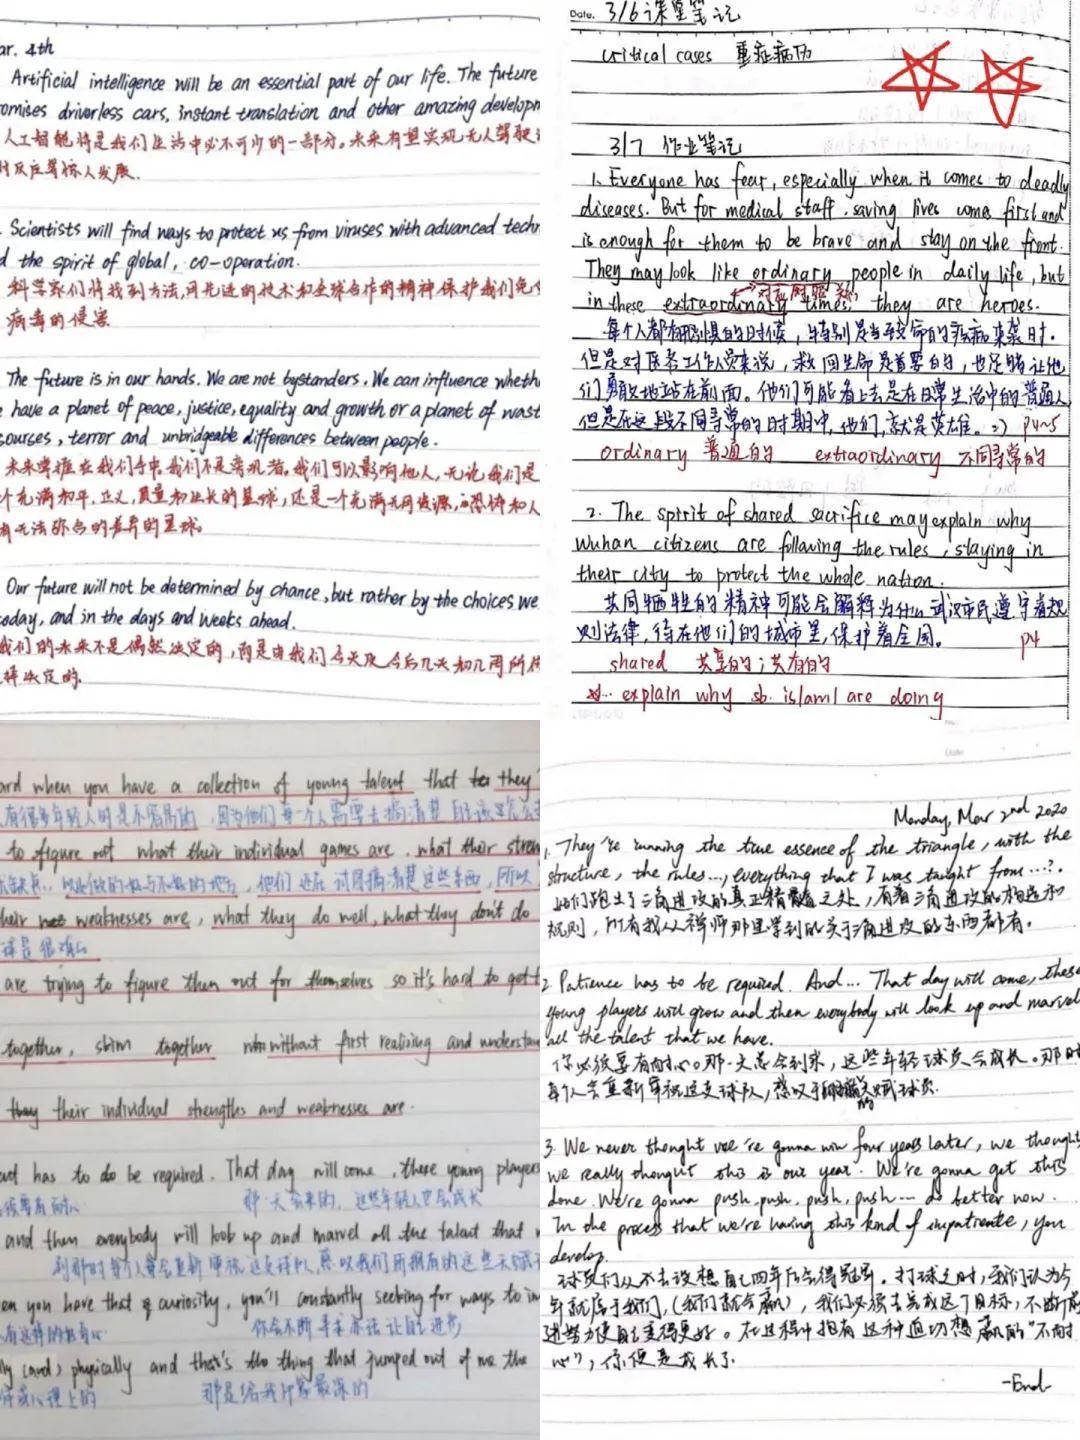 ar. 4th
Artificial intelligence will be an essential part of our life. The future
omises driverless cars, instant translation and other amazing developm
人工智能将是我们生活中必不可少的一部分。未来有望实现无人驾驶
时反应等惊人发展.
. Scientists will find ways to protect us from viruses with advanced techn
d the spirit of global, co-operation.
科学家们将找到方法,用先进的技术和全球合作的精神保护我们免
病毒的侵害
The future is in our hands. We are not bystanders. We can influence wheth
have a planet of peace, justice, equality and growth or a planet of wast
sources, terror and unbridgeable differences between people.
未来掌握在我们手中.我们不是旁观者。我们可以影响他人,无论我们是
个充满和平,正义,质量和成长的星球,还是一个充满无用资源,恐怖和人
有无法弥合的差异的星球。
Our future will not be determined by chance, but rather by the choices we
today, and in the days and weeks ahead.
我们的未来不是偶然决定的,而是由我们今天及今后几天和几周所
择决定的.
Date. 3/6 课堂笔记
critical cases 重症病历
3/7 作业笔记
1. Everyone has fear, especially when it comes to deadly
diseases. But for medical staff, saving lives comes first and
is enough for them to be brave and stay on the front.
They may look like ordinary people in daily life, but
in these extraordinary times, they are heroes.
每个人都有恐惧的时候,特别是当致命的疾病来袭时.
但是对医务工作人员来说,救回生命是首要的,也足够让他
们勇敢地站在前面。他们可能看上去是在日常生活中的普通人
但是在这段不同寻常的时期中,他们,就是英雄。 P4~5
ordinary 普通的 extraordinary 不同寻常的
2. The spirit of shared sacrifice may explain why
Wuhan citizens are following the rules, staying in
their city to protect the whole nation.
共同牺牲的精神可能会解释为什么武汉市民遵守着规
则法律,待在他们的城市里,保护着全国。 P4
shared 共享的;共有的
explain why sb. is/am/are doing
ard when you have a collection of young talent that they
有很多年轻人时是不容易的,因为他们每一个人需要去搞清楚
to figure out what their individual games are, what their stren
以及做的好与不好的地方,他们还在讨图搞清楚这些东西,所以
their weaknesses are, what they do well, what they don't do
球是很难的
are trying to figure them out for themselves so it's hard to get
together, together without first realizing and understan
their individual strengths and weaknesses are.
has to do be required. That day will come, these young players
要有耐心 那一天会来的,这些年轻人也会成长
and then everybody will look up and marvel all the talent that
到那时每个人都会重新审视这支球队,感叹我们所拥有的这些天赋
en you have that curiosity, you'll constantly seeking for ways to im
有这样的好奇心 你会不断寻求办法让自己进步
ly (and) physically and that's the thing that jumped out of me the
心理上的 那是给我印象最深的
Date
Monday, Mar 2nd 2020
1. They're running the true essence of the triangle, with the
structure, the rules..., everything that I was taught from...?.
他们跑出了三角进攻的真正精髓之处,有着三角进攻的构造和
规则,所有我从禅师那里学到的关于三角进攻的东西都有。
2. Patience has to be required. And... That day will come, these
young players will grow and then everybody will look up and marvel
all the talent that we have.
你必须要有耐心。那一天总会到来,这些年轻球员会成长。那时
每个人会重新审视这支球队,感叹于天赋球员.
3. We never thought we're gonna win four years later, we thought
we really thought this is our year. We're gonna get this
done. We're gonna push, push, push, push... do better now.
In the process that we're having this kind of impatiente, you
develop.
球员们从不去设想自己四年后会得冠军。打球之时,我们认为今
年就属于我们,(我们就会赢),我们必须去完成这个目标,不断前
进努力使自己变得更好。在过程中抱有这种迫切想赢的“不耐
心”,你便是成长了.
-End-